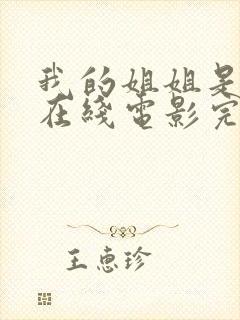 我的姐姐是
在綫電影完
王惠珍